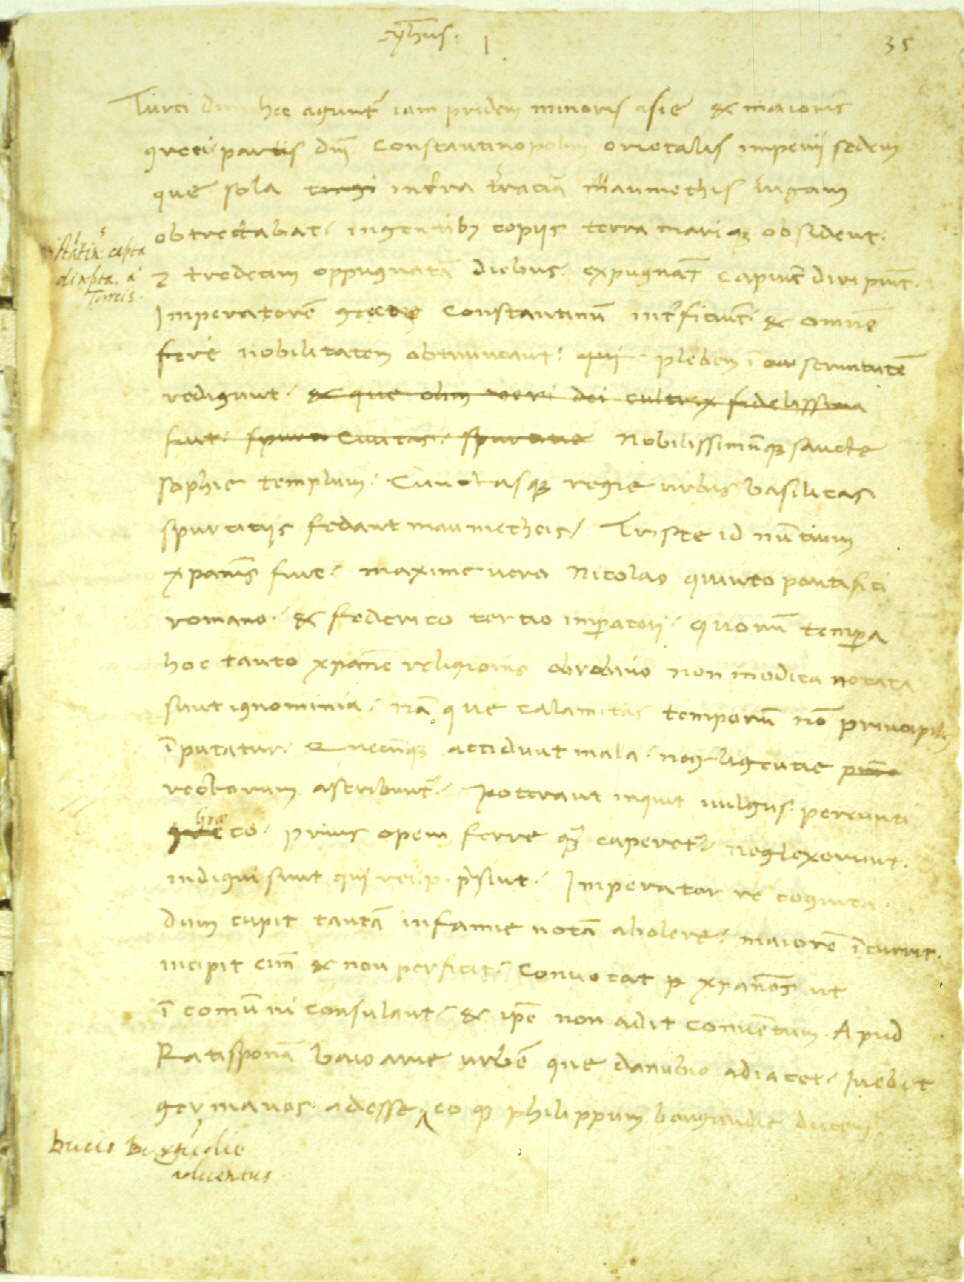 yhus. 1 35
Turci dum hec agunt iam pridem minoris asie & maioris
grecie partis dni Constantinopolim orietalis imperij sedem
que sola intra traciam Maumethis iugum
obtrectabat ingentibus copijs terra marique obsident.
& tredecim oppugnatā diebus expugnāt capiunt diripiunt.
Imperatorē grecie Constantinū interficiunt & omnē
fere nobilitatem obtruncant plebem i servitutē
redigunt. & que olim veri dei cultrix fidelissima
fuit spurca civitas Nobilissimūque sancte
sophie templum. Cunctasque regie urbis basilicas
spurcitijs fedant maumetheis. Triste id nūtium
xpianis fuit. maxime vero Nicolao quinto pontifici
romano. & Federico tertio imperatori. quorū tempora
hoc tanto xpiane religionis obrobrio non modica notata
sunt ignominia. nā que calamitas temporū nō principibus
īputatur. Quecūque accidunt mala. negligentie
rectorum ascribunt. Poterant inquit vulgus. pereunti
grecie prius opem ferre quam caperet. neglexerunt.
indigni sunt qui rei p. presint. Imperator re cognita.
dum cupit tantā infamie notā abolere. maiorē īcurrit.
incipit enī & non perficit. Convocat xpianos ut
ī comūni consulant. & ipse non adit conventum. Apud
Ratisponā baioarie urbē que danubio adiacet. Iubet
germanos adesse eo que philippum burgundie ducem
capta
direpta. a
Turcis.
Ducis Burgundie
adventus